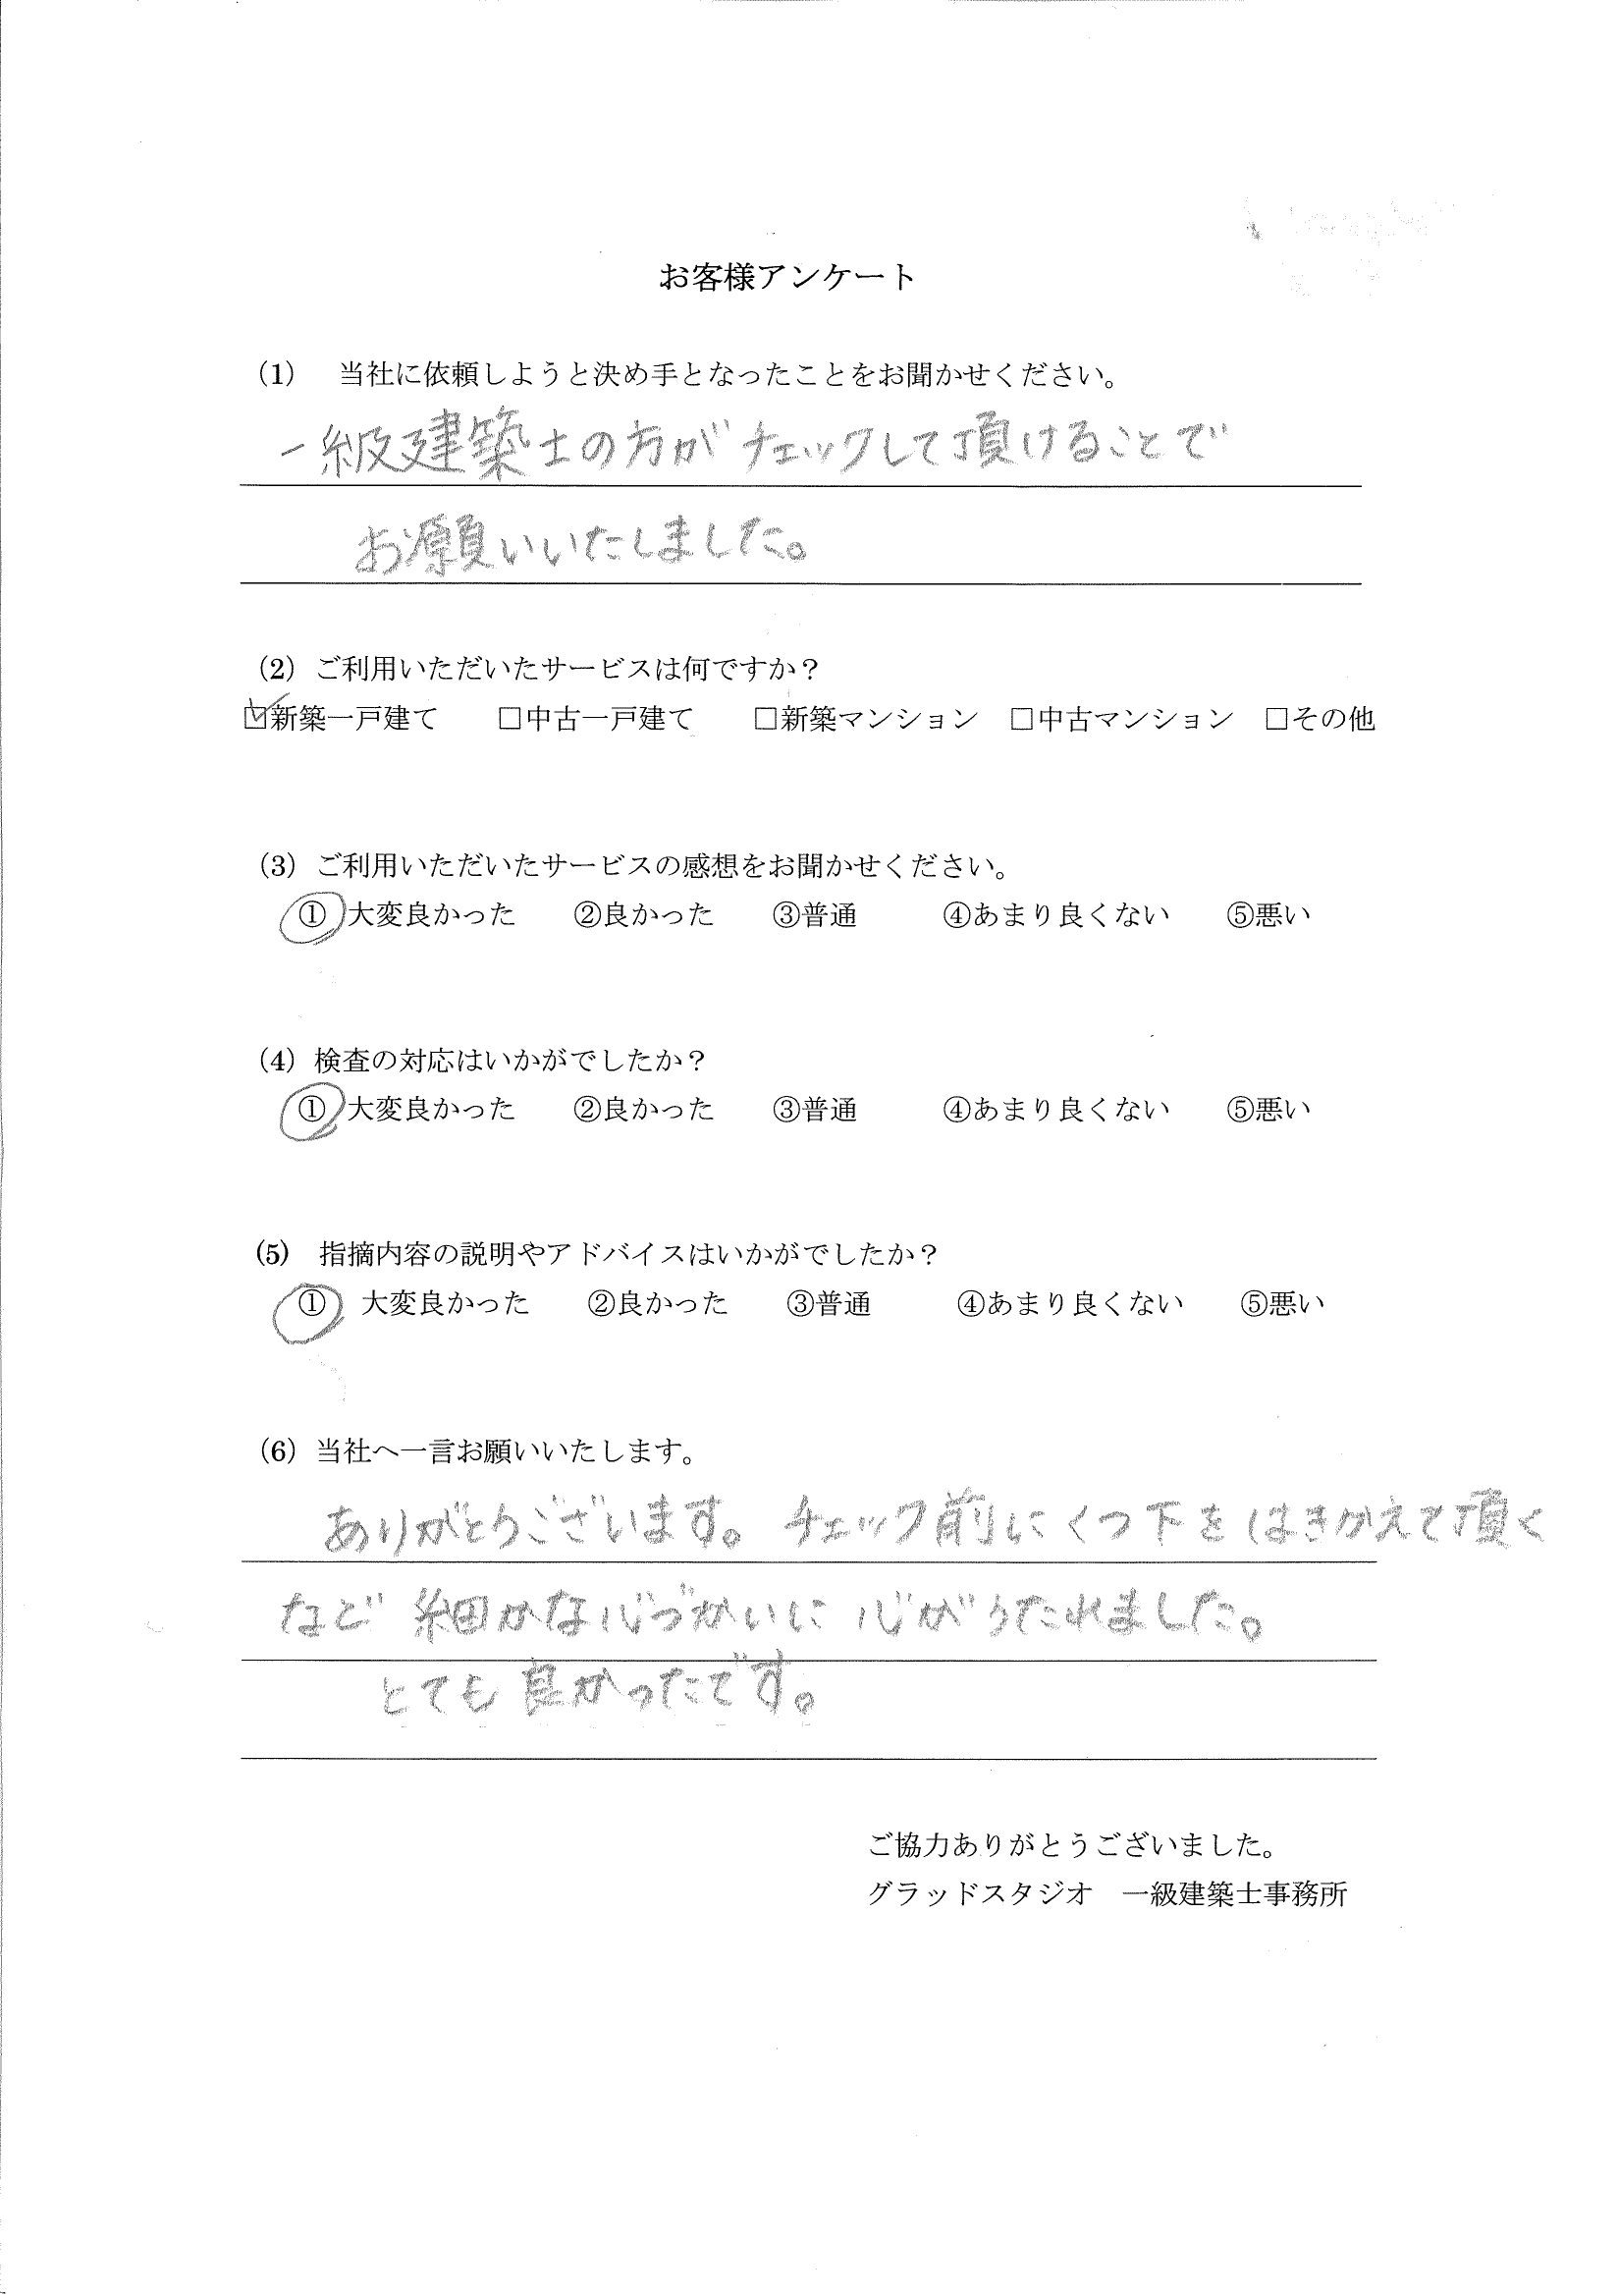 お客様アンケート
(1)　当社に依頼しようと決め手となったことをお聞かせください。
一級建築士の方がチェックして頂けることで
お願いいたしました。
(2) ご利用いただいたサービスは何ですか？
☑新築一戸建て　□中古一戸建て　□新築マンション　□中古マンション　□その他
(3) ご利用いただいたサービスの感想をお聞かせください。
①大変良かった　②良かった　③普通　④あまり良くない　⑤悪い
(4) 検査の対応はいかがでしたか？
①大変良かった　②良かった　③普通　④あまり良くない　⑤悪い
(5)　指摘内容の説明やアドバイスはいかがでしたか？
①　大変良かった　②良かった　③普通　④あまり良くない　⑤悪い
(6) 当社へ一言お願いいたします。
ありがとうございます。チェック前にくつ下をはきかえて頂く
など 細かな心づかいに 心がうたれました。
とても良かったです。
ご協力ありがとうございました。
グラッドスタジオ　一級建築士事務所